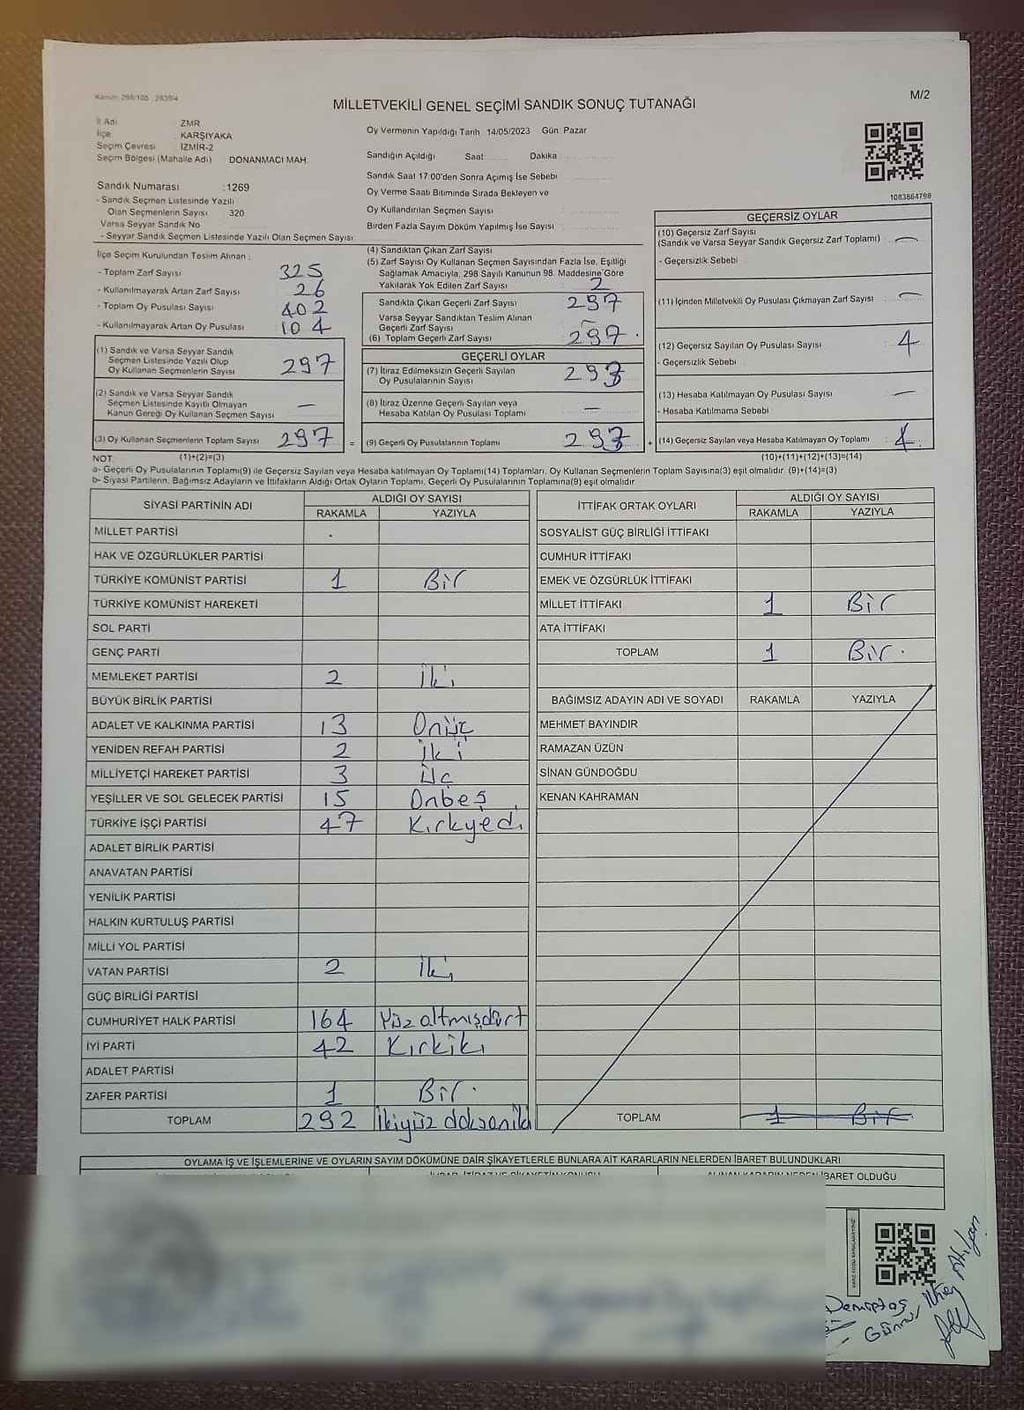 Kanun: 298/105 2839/4
MİLLETVEKİLİ GENEL SEÇİMİ SANDIK SONUÇ TUTANAĞI
M/2
İl Adı : ZMR
İlçe : KARŞIYAKA
Seçim Çevresi : İZMİR-2
Seçim Bölgesi (Mahalle Adı) DONANMACI MAH.
Sandık Numarası :1269
- Sandık Seçmen Listesinde Yazılı
Olan Seçmenlerin Sayısı 320
Varsa Seyyar Sandık No
- Seyyar Sandık Seçmen Listesinde Yazılı Olan Seçmen Sayısı
İlçe Seçim Kurulundan Teslim Alınan :
- Toplam Zarf Sayısı 325
- Kullanılmayarak Artan Zarf Sayısı 26
- Toplam Oy Pusulası Sayısı 402
- Kullanılmayarak Artan Oy Pusulası 104
(1) Sandık ve Varsa Seyyar Sandık
Seçmen Listesinde Yazılı Olup
Oy Kullanan Seçmenlerin Sayısı 297
(2) Sandık ve Varsa Seyyar Sandık
Seçmen Listesinde Kayıtlı Olmayan
Kanun Gereği Oy Kullanan Seçmen Sayısı —
(3) Oy Kullanan Seçmenlerin Toplam Sayısı 297 =
Oy Vermenin Yapıldığı Tarih 14/05/2023 Gün Pazar
Sandığın Açıldığı Saat Dakika
Sandık Saat 17:00'den Sonra Açımış İse Sebebi
Oy Verme Saati Bitiminde Sırada Bekleyen ve
Oy Kullandırılan Seçmen Sayısı
Birden Fazla Sayım Döküm Yapılmış İse Sayısı
(4) Sandıktan Çıkan Zarf Sayısı :
(5) Zarf Sayısı Oy Kullanan Seçmen Sayısından Fazla İse, Eşitliği
Sağlamak Amacıyla, 298 Sayılı Kanunun 98. Maddesine Göre
Yakılarak Yok Edilen Zarf Sayısı : 2
Sandıkta Çıkan Geçerli Zarf Sayısı : 297
Varsa Seyyar Sandıktan Teslim Alınan
Geçerli Zarf Sayısı : —
(6) Toplam Geçerli Zarf Sayısı : 297
GEÇERLİ OYLAR
(7) İtiraz Edilmeksizin Geçerli Sayılan
Oy Pusulalarının Sayısı : 293
(8) İtiraz Üzerine Geçerli Sayılan veya
Hesaba Katılan Oy Pusulası Toplamı : —
(9) Geçerli Oy Pusulalarının Toplamı : 293 +
1083864798
GEÇERSİZ OYLAR
(10) Geçersiz Zarf Sayısı
(Sandık ve Varsa Seyyar Sandık Geçersiz Zarf Toplamı) : —
- Geçersizlik Sebebi
(11) İçinden Milletvekili Oy Pusulası Çıkmayan Zarf Sayısı : —
(12) Geçersiz Sayılan Oy Pusulası Sayısı : 4
- Geçersizlik Sebebi
(13) Hesaba Katılmayan Oy Pusulası Sayısı : —
- Hesaba Katılmama Sebebi
(14) Geçersiz Sayılan veya Hesaba Katılmayan Oy Toplamı : 4
NOT: (1)+(2)=(3) (10)+(11)+(12)+(13)=(14)
a- Geçerli Oy Pusulalarının Toplamı(9) ile Geçersiz Sayılan veya Hesaba katılmayan Oy Toplamı(14) Toplamları, Oy Kullanan Seçmenlerin Toplam Sayısına(3) eşit olmalıdır. (9)+(14)=(3)
b- Siyasi Partilerin, Bağımsız Adayların ve İttifakların Aldığı Ortak Oyların Toplamı, Geçerli Oy Pusulalarının Toplamına(9) eşit olmalıdır.
SİYASİ PARTİNİN ADI ALDIĞI OY SAYISI
RAKAMLA YAZIYLA
MİLLET PARTİSİ
HAK VE ÖZGÜRLÜKLER PARTİSİ
TÜRKİYE KOMÜNİST PARTİSİ 1 Bir
TÜRKİYE KOMÜNİST HAREKETİ
SOL PARTİ
GENÇ PARTİ
MEMLEKET PARTİSİ 2 İki
BÜYÜK BİRLİK PARTİSİ
ADALET VE KALKINMA PARTİSİ 13 Onüç
YENİDEN REFAH PARTİSİ 2 İki
MİLLİYETÇİ HAREKET PARTİSİ 3 Üç
YEŞİLLER VE SOL GELECEK PARTİSİ 15 Onbeş
TÜRKİYE İŞÇİ PARTİSİ 47 Kırkyedi
ADALET BİRLİK PARTİSİ
ANAVATAN PARTİSİ
YENİLİK PARTİSİ
HALKIN KURTULUŞ PARTİSİ
MİLLİ YOL PARTİSİ
VATAN PARTİSİ 2 İki
GÜÇ BİRLİĞİ PARTİSİ
CUMHURİYET HALK PARTİSİ 164 Yüz altmışdört
İYİ PARTİ 42 Kırkiki
ADALET PARTİSİ
ZAFER PARTİSİ 1 Bir
TOPLAM 292 İkiyüz doksaniki
İTTİFAK ORTAK OYLARI ALDIĞI OY SAYISI
RAKAMLA YAZIYLA
SOSYALİST GÜÇ BİRLİĞİ İTTİFAKI
CUMHUR İTTİFAKI
EMEK VE ÖZGÜRLÜK İTTİFAKI
MİLLET İTTİFAKI 1 Bir
ATA İTTİFAKI
TOPLAM 1 Bir
BAĞIMSIZ ADAYIN ADI VE SOYADI RAKAMLA YAZIYLA
MEHMET BAYINDIR
RAMAZAN ÜZÜN
SİNAN GÜNDOĞDU
KENAN KAHRAMAN
TOPLAM 1 Bir
OYLAMA İŞ VE İŞLEMLERİNE VE OYLARIN SAYIM DÖKÜMÜNE DAİR ŞİKAYETLERLE BUNLARA AİT KARARLARIN NELERDEN İBARET BULUNDUKLARI
ALINAN KARARIN NEDEN İBARET OLDUĞU
Demirtaş